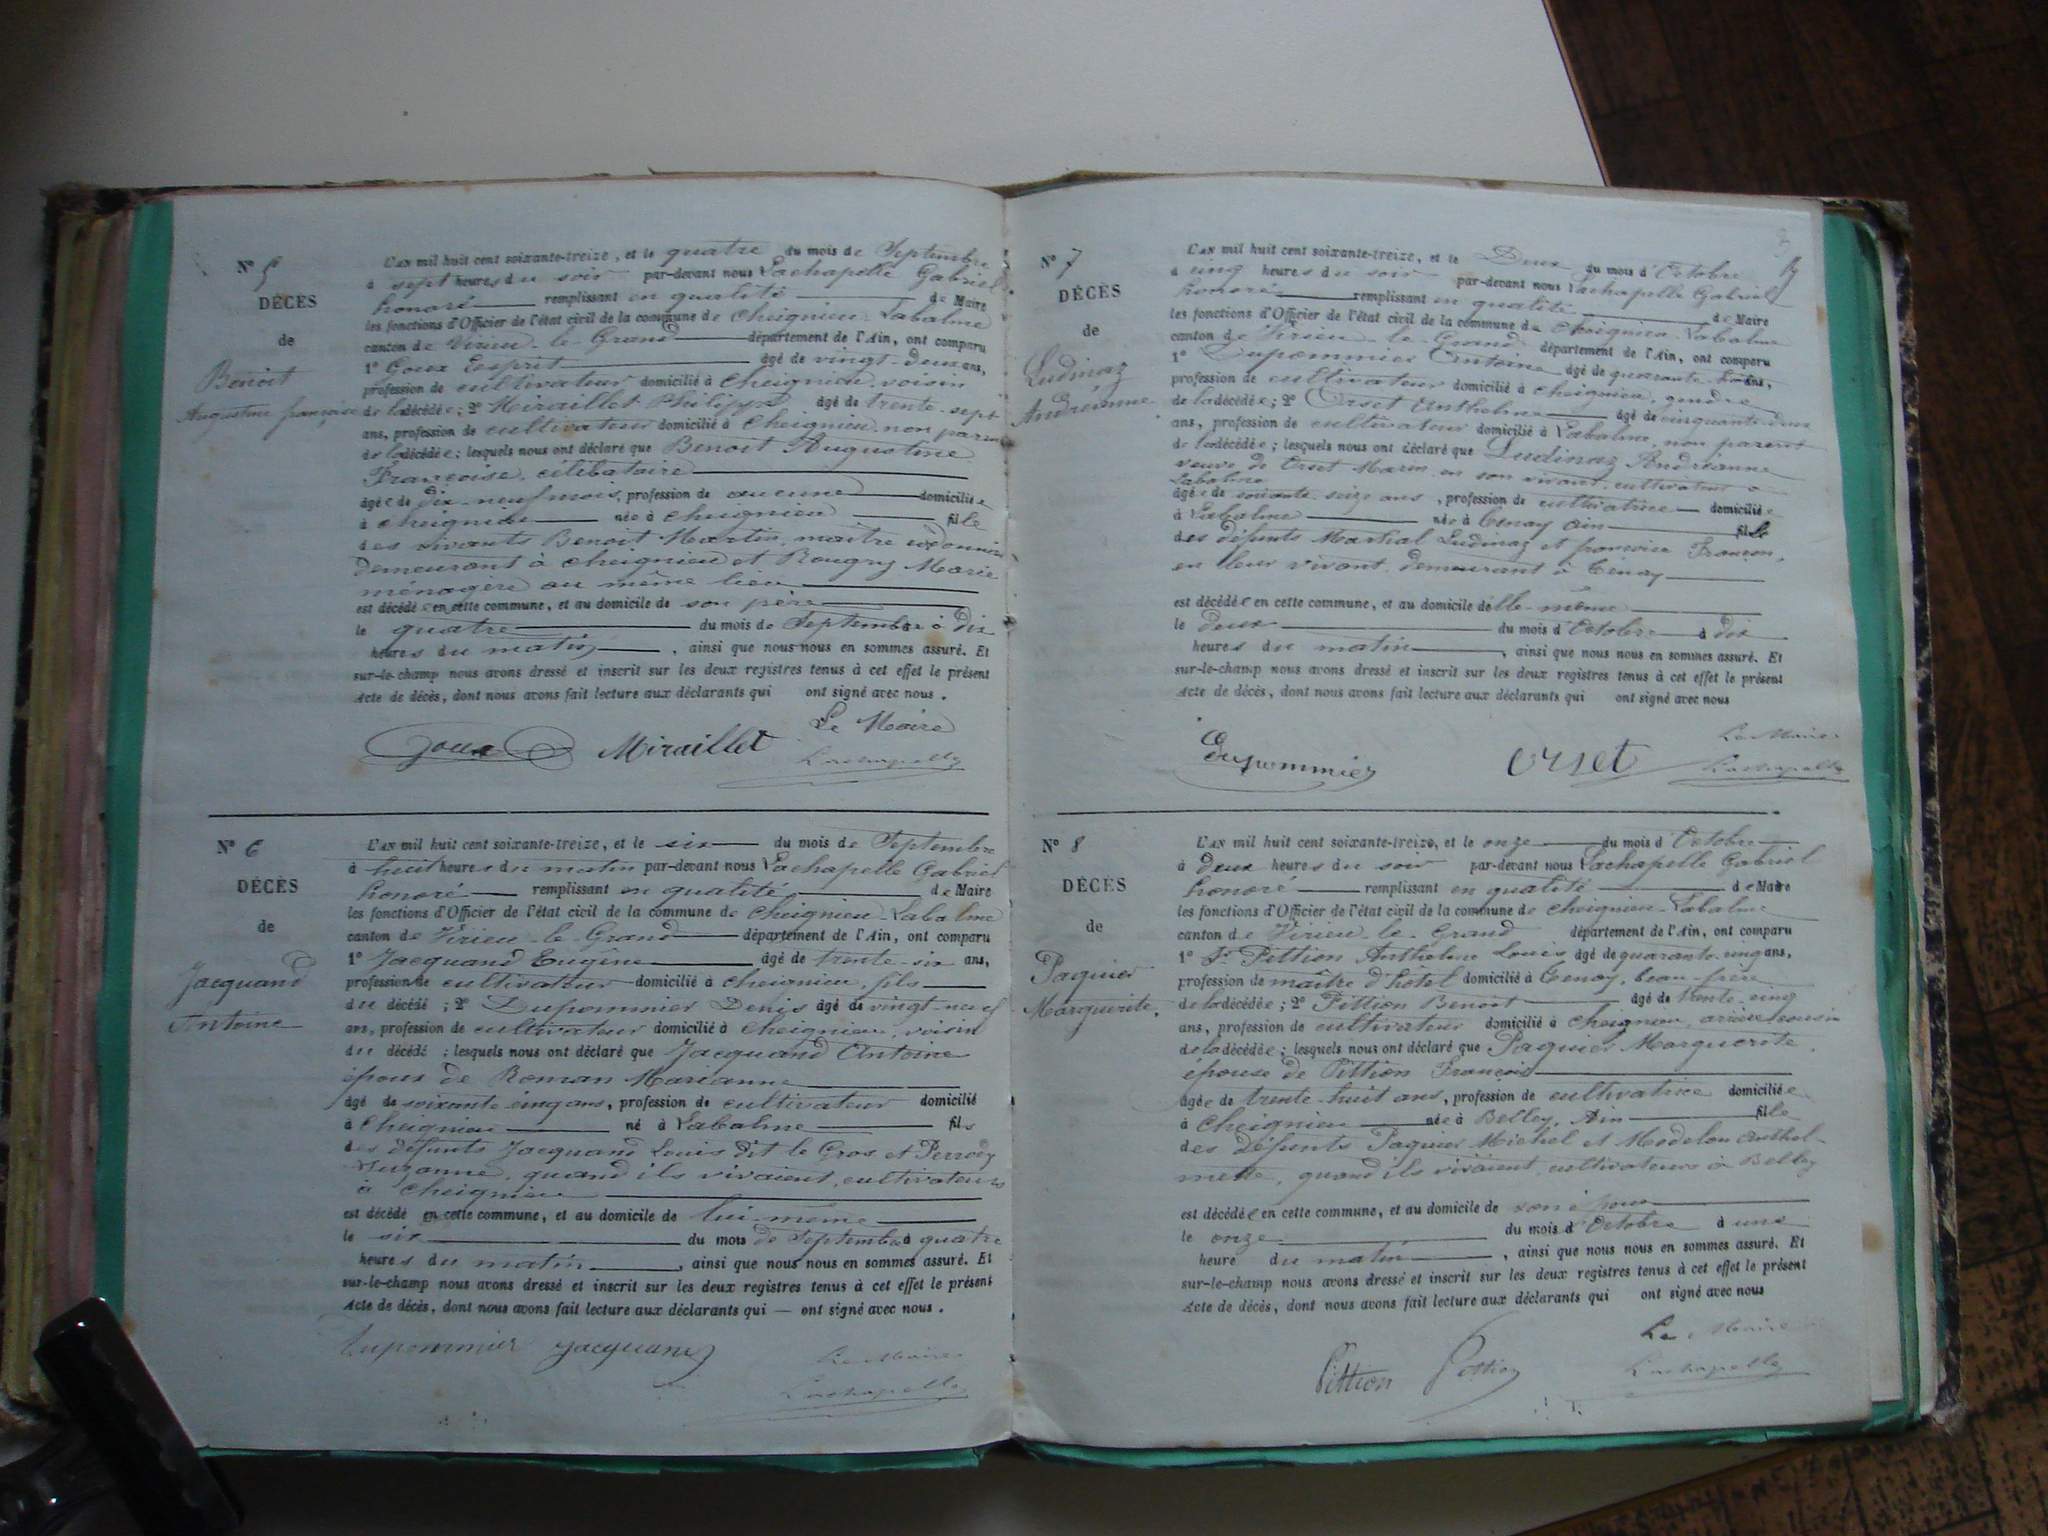 N° 5
DÉCÈS
de
Benoit
Augustine françoise
L'AN mil huit cent soixante-treize, et le quatre du mois de Septembre
à sept heures du soir par-devant nous Lachapelle Gabriel
honoré remplissant en qualité de Maire
les fonctions d'Officier de l'état civil de la commune de Cheignieu-Labalme
canton de Virieu-le-Grand département de l'Ain, ont comparu
1° Goux Esprit âgé de vingt-deux ans,
profession de cultivateur domicilié à Cheignieu, voisin
de la décédée; 2° Miraillet Philippe âgé de trente-sept
ans, profession de cultivateur domicilié à Cheignieu, non parent
de la décédée; lesquels nous ont déclaré que Benoit Augustine
Françoise, célibataire
âgée de dix-neuf mois, profession de aucune domiciliée
à Cheignieu née à Cheignieu fille
des vivants Benoit Martin, maître cordonnier
demeurant à Cheignieu et Rougny Marie
ménagère au même lieu
est décédée en cette commune, et au domicile de son père
le quatre du mois de Septembre à dix
heures du matin, ainsi que nous nous en sommes assuré. Et
sur-le-champ nous avons dressé et inscrit sur les deux registres tenus à cet effet le présent
Acte de décès, dont nous avons fait lecture aux déclarants qui ont signé avec nous.
Le Maire
Goux Miraillet Lachapelle
N° 6
DÉCÈS
de
Jacquand
Antoine
L'AN mil huit cent soixante-treize, et le six du mois de Septembre
à huit heures du matin par-devant nous Lachapelle Gabriel
honoré remplissant en qualité de Maire
les fonctions d'Officier de l'état civil de la commune de Cheignieu-Labalme
canton de Virieu-le-Grand département de l'Ain, ont comparu
1° Jacquand Eugène âgé de trente-six ans,
profession de cultivateur domicilié à Cheignieu, fils
du décédé; 2° Dupommier Denis âgé de vingt-neuf
ans, profession de cultivateur domicilié à Cheignieu, voisin
du décédé; lesquels nous ont déclaré que Jacquand Antoine
époux de Roman Marianne
âgé de soixante-cinq ans, profession de cultivateur domicilié
à Cheignieu né à Labalme fils
des défunts Jacquand Louis dit le Gros et Perroly
Suzanne, quand ils vivaient, cultivateurs
à Cheignieu
est décédé en cette commune, et au domicile de lui-même
le six du mois de Septembre à quatre
heures du matin, ainsi que nous nous en sommes assuré. Et
sur-le-champ nous avons dressé et inscrit sur les deux registres tenus à cet effet le présent
Acte de décès, dont nous avons fait lecture aux déclarants qui — ont signé avec nous.
Dupommier Jacquand
Le Maire
Lachapelle
N° 7
DÉCÈS
de
Ludinaz
Andréanne
L'AN mil huit cent soixante-treize, et le Deux du mois d'Octobre
à cinq heures du soir par-devant nous Lachapelle Gabriel
honoré remplissant en qualité de Maire
les fonctions d'Officier de l'état civil de la commune de Cheignieu-Labalme
canton de Virieu-le-Grand département de l'Ain, ont comparu
1° Dupommier Antoine âgé de quarante ans,
profession de cultivateur domicilié à Cheignieu, gendre
de la décédée; 2° Orset Anthelme âgé de cinquante-deux
ans, profession de cultivateur domicilié à Labalme, non parent
de la décédée; lesquels nous ont déclaré que Ludinaz Andréanne
veuve de Orset Marin en son vivant cultivateur à
Labalme
âgée de soixante-seize ans, profession de cultivatrice domiciliée
à Labalme née à Tenay Ain fille
des défunts Martial Ludinaz et françoise Françon,
en leur vivant demeurant à Tenay
est décédée en cette commune, et au domicile d'elle-même
le deux du mois d'Octobre à dix
heures du matin, ainsi que nous nous en sommes assuré. Et
sur-le-champ nous avons dressé et inscrit sur les deux registres tenus à cet effet le présent
Acte de décès, dont nous avons fait lecture aux déclarants qui ont signé avec nous
Le Maire
Dupommier Orset Lachapelle
N° 8
DÉCÈS
de
Paquier
Marguerite.
L'AN mil huit cent soixante-treize, et le onze du mois d'Octobre
à deux heures du soir par-devant nous Lachapelle Gabriel
honoré remplissant en qualité de Maire
les fonctions d'Officier de l'état civil de la commune de Cheignieu-Labalme
canton de Virieu-le-Grand département de l'Ain, ont comparu
1° Pittion Anthelme Louis âgé de quarante-cinq ans,
profession de maître d'hôtel domicilié à Tenay, beau-frère
de la décédée; 2° Pittion Benoit âgé de trente-cinq
ans, profession de cultivateur domicilié à Cheignieu, arrière cousin
de la décédée; lesquels nous ont déclaré que Paquier Marguerite,
épouse de Pittion François
âgée de trente-huit ans, profession de cultivatrice domiciliée
à Cheignieu née à Belley, Ain fille
des défunts Paquier Michel et Modelon Anthel-
mette, quand ils vivaient, cultivateurs à Belley
est décédée en cette commune, et au domicile de son époux
le onze du mois d'Octobre à une
heure du matin, ainsi que nous nous en sommes assuré. Et
sur-le-champ nous avons dressé et inscrit sur les deux registres tenus à cet effet le présent
Acte de décès, dont nous avons fait lecture aux déclarants qui ont signé avec nous
Le Maire
Pittion Pittion Lachapelle